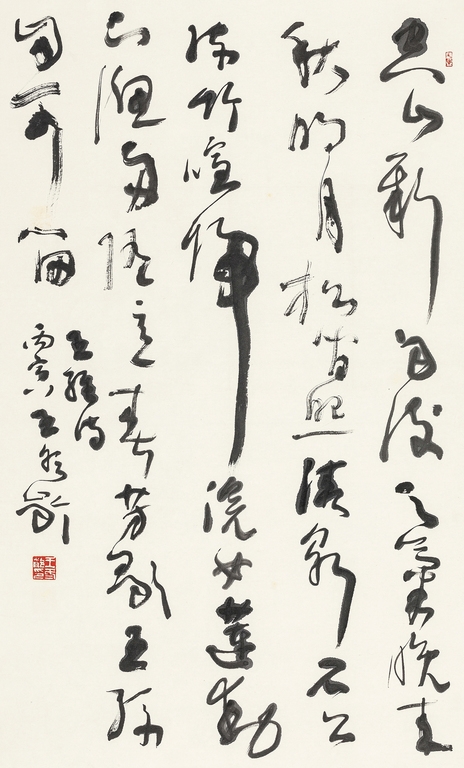 空山新雨後天氣晚來
秋明月松間照清泉石上
流竹喧歸浣女蓮動
下漁舟隨意春芳歇王孫
自可留
王維詩
丙寅王冬齡